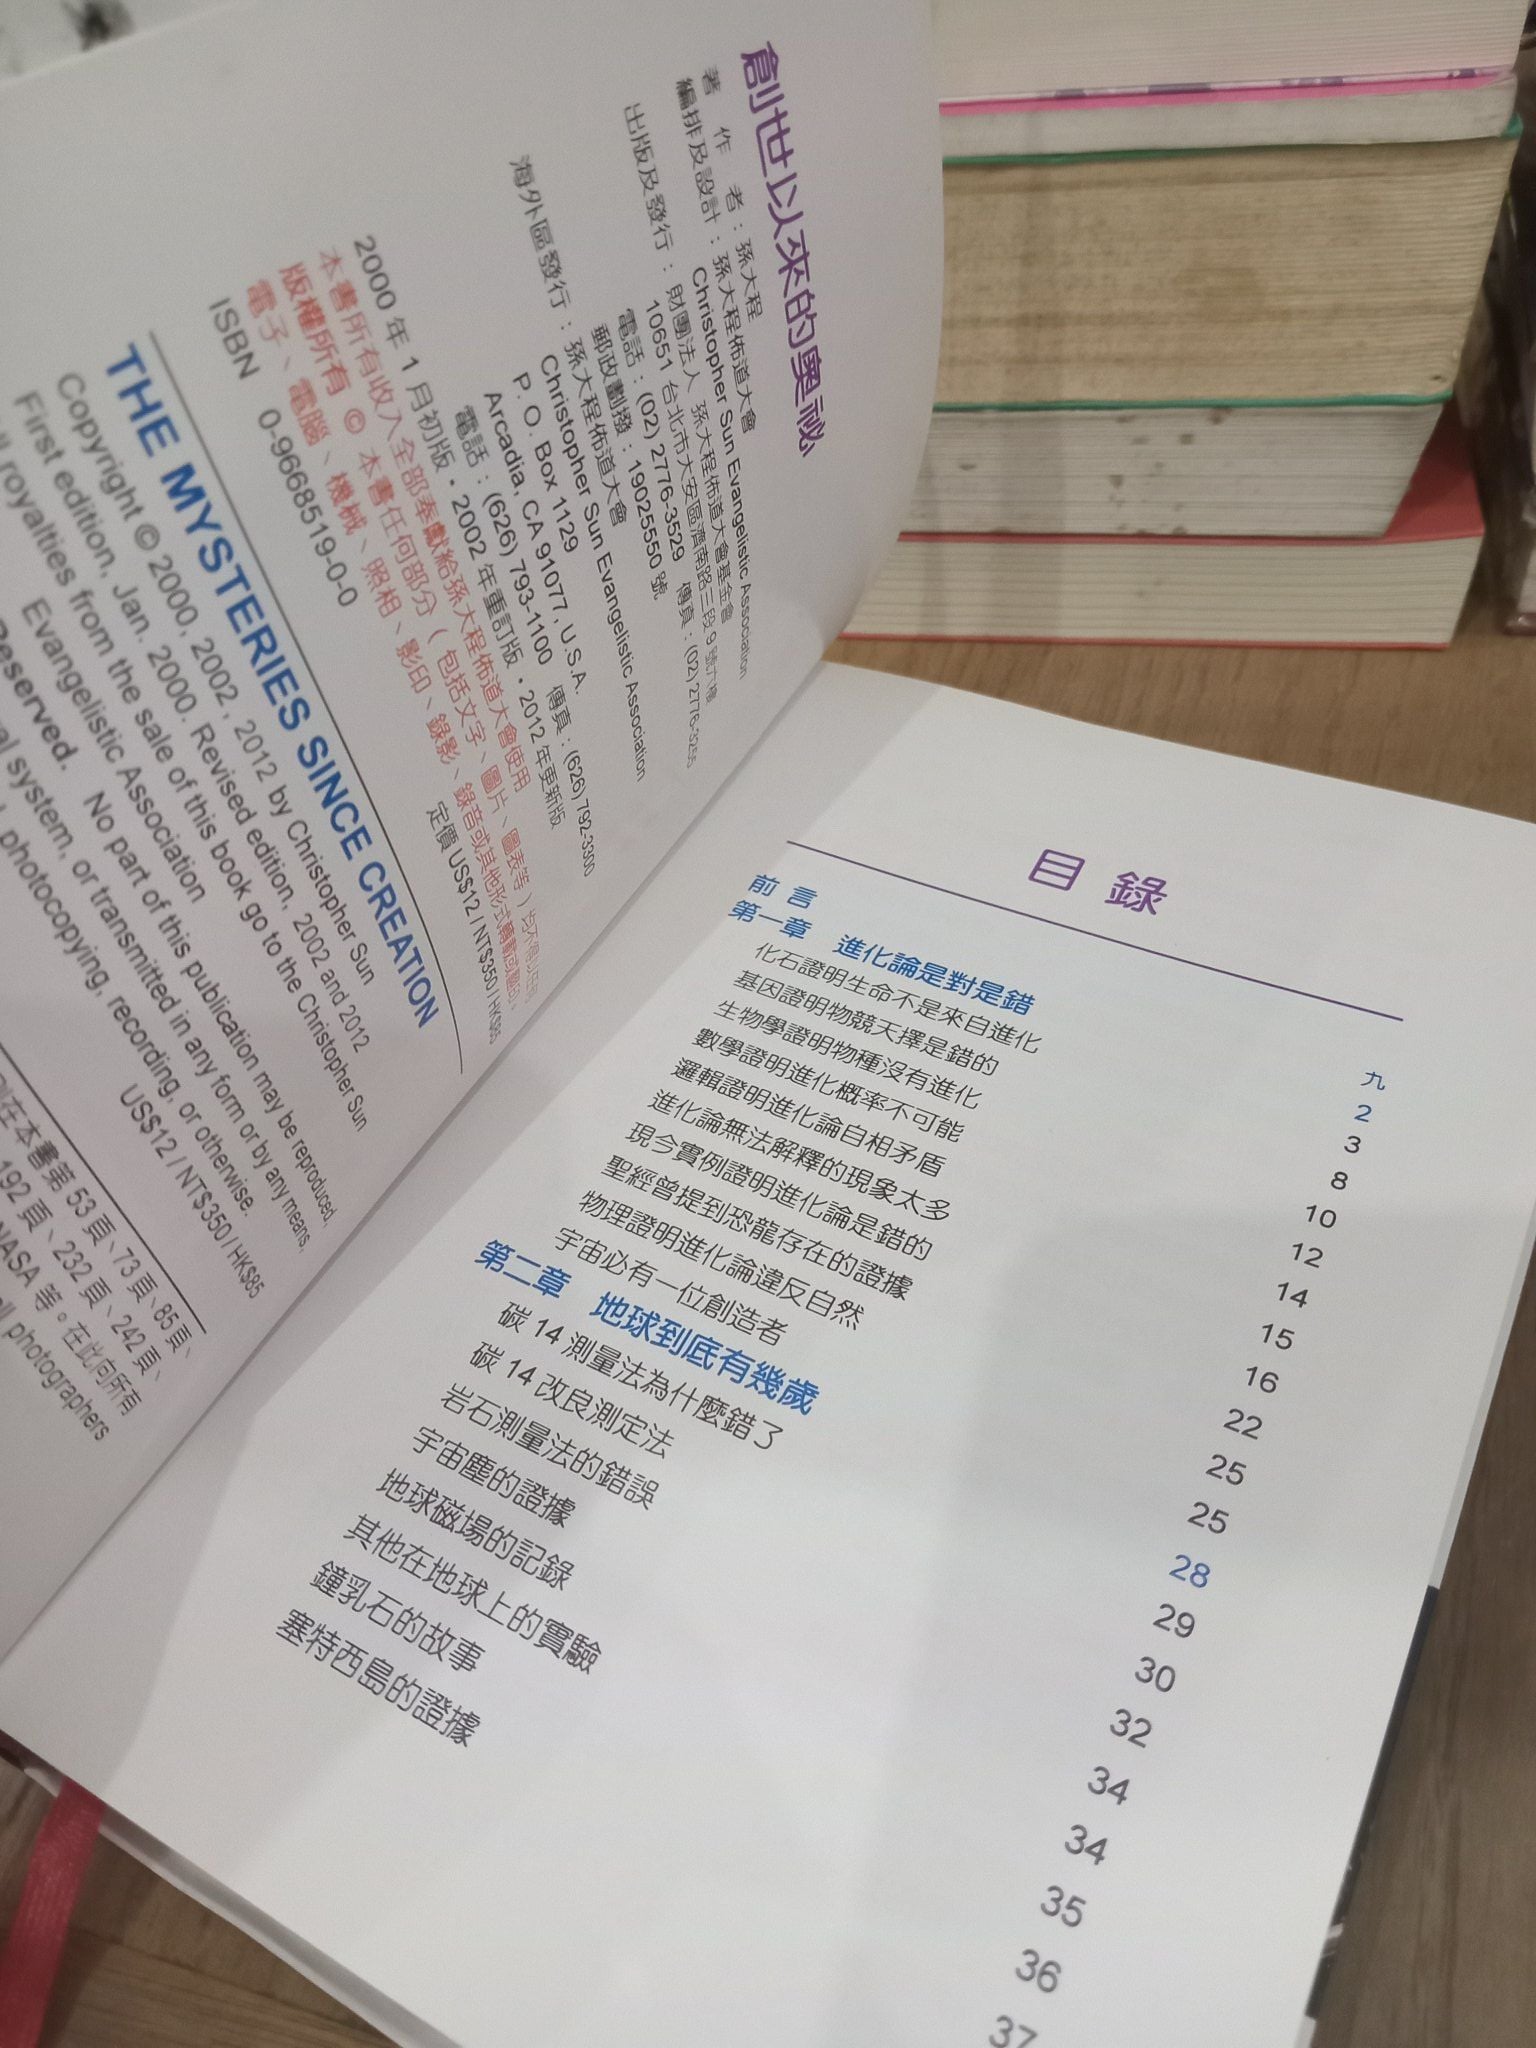 創世以來的奧祕
著作者：孫大程
編排及設計：孫大程佈道大會
Christopher Sun Evangelistic Association
出版及發行：財團法人 孫大程佈道大會基金會
10651 台北市大安區濟南路三段9號六樓
電話：(02) 2776-3529 傳真：(02) 2776-3255
郵政劃撥：19025550 號
海外區發行：孫大程佈道大會
Christopher Sun Evangelistic Association
P. O. Box 1129
Arcadia, CA 91077, U.S.A.
電話：(626) 793-1100 傳真：(626) 792-3300
2000 年 1 月初版・2002 年重訂版・2012 年更新版
本書所有收入全部奉獻給孫大程佈道大會使用
版權所有 © 本書任何部分（包括文字、圖片、圖表等）均不得以任何
電子、電腦、機械、照相、影印、錄影、錄音或其他形式轉載或翻印。
ISBN 0-9668519-0-0
定價 US$12 / NT$350 / HK$85
THE MYSTERIES SINCE CREATION
Copyright © 2000, 2002, 2012 by Christopher Sun
First edition, Jan. 2000. Revised edition, 2002 and 2012
royalties from the sale of this book go to the Christopher Sun
Evangelistic Association
Reserved. No part of this publication may be reproduced,
system, or transmitted in any form or by any means,
photocopying, recording, or otherwise.
US$12 / NT$350 / HK$85
在本書第 53 頁、73 頁、85 頁、
192 頁、232 頁、242 頁、
NASA 等。在此向所有
photographers
目錄
前言 九
第一章 進化論是對是錯 2
化石證明生命不是來自進化 3
基因證明物競天擇是錯的 8
生物學證明物種沒有進化 10
數學證明進化概率不可能 12
邏輯證明進化論自相矛盾 14
進化論無法解釋的現象太多 15
現今實例證明進化論是錯的 16
聖經曾提到恐龍存在的證據 22
物理證明進化論違反自然 25
宇宙必有一位創造者 25
第二章 地球到底有幾歲 28
碳 14 測量法為什麼錯了 29
碳 14 改良測定法 30
岩石測量法的錯誤 32
宇宙塵的證據 34
地球磁場的記錄 34
其他在地球上的實驗 35
鐘乳石的故事 36
塞特西島的證據 37